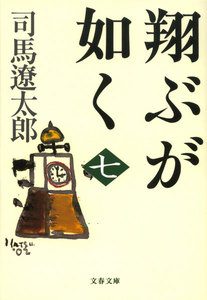 翔ぶが
如く
七
司馬遼太郎
HATSU
'02
文春文庫